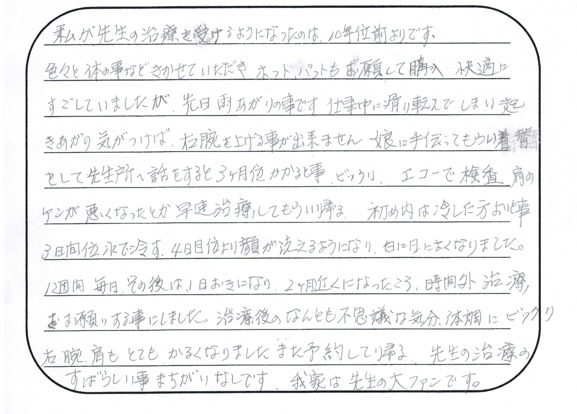 私が先生の治療を受けるようになったのは、10年位前よりです。
色々と体の事などきかせていただき ホットパットもお願して購入 快適に
すごしていましたが、先日雨あがりの事です 仕事中に滑り転んでしまい起
きあがり気がつけば、右腕を上げる事が出来ません 娘に手伝ってもらい着替
をして先生所へ話をすると3ヶ月位かかると事、ビックリ、エコーで検査 肩の
ケンが悪くなったとか 早速治療してもらい帰る 初め内は冷した方よと事
3日間位氷で冷す、4日目位より顔が洗えるようになり、日に日によくなりました。
1週間 毎日、その後は、1日おきになり、2ヶ月近くになったころ、時間外治療、
をお願りする事にしました。治療後のなんとも不思議な気分、体調にビックリ
右腕、肩もとてもかるくなりました また予約して帰る、先生の治療の
すばらしい事まちがいなしです、我家は先生の大ファンです。